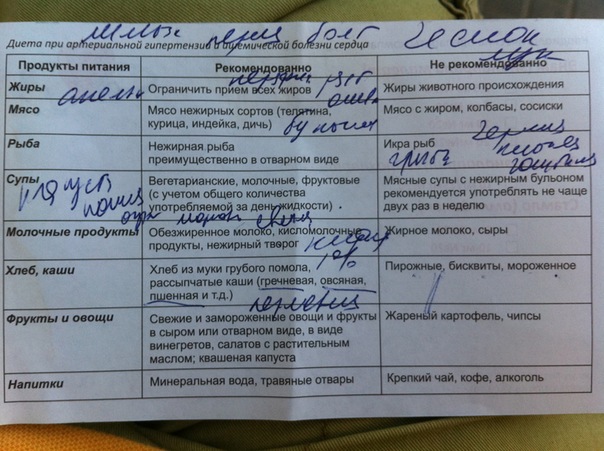 перец болг чеснок
Диета при артериальной гипертензии и ишемической болезни сердца
лук
Продукты питания Рекомендовано Не рекомендовано
Жиры Ограничить прием всех жиров Жиры животного происхождения
Мясо Мясо нежирных сортов (телятина, Мясо с жиром, колбасы, сосиски
курица, индейка, дичь)
Рыба Нежирная рыба Икра рыб
преимущественно в отварном виде грибы
Супы Вегетарианские, молочные, фруктовые Мясные супы с нежирным бульоном
капуста (с учетом общего количества рекомендуется употреблять не чаще
употребляемой за день жидкости) двух раз в неделю
свекла
Молочные продукты Обезжиренное молоко, кисломолочные Жирное молоко, сыры
продукты, нежирный творог
1%
Хлеб, каши Хлеб из муки грубого помола, Пирожные, бисквиты, мороженное
рассыпчатые каши (гречневая, овсяная,
пшенная и т.д.)
перловка
Фрукты и овощи Свежие и замороженные овощи и фрукты Жареный картофель, чипсы
в сыром или отварном виде, в виде
винегретов, салатов с растительным
маслом; квашеная капуста
Напитки Минеральная вода, травяные отвары Крепкий чай, кофе, алкоголь